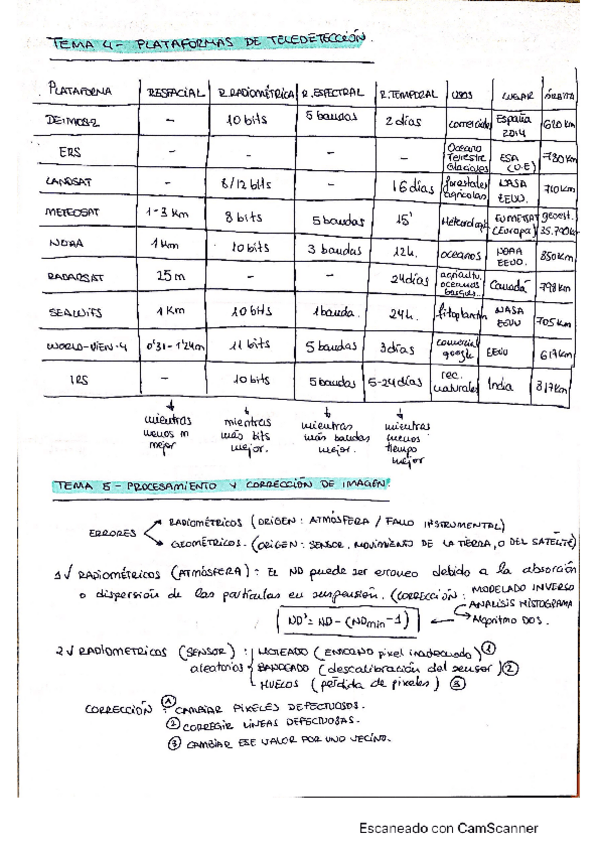 TEMA 4 - PLATAFORMAS DE TELEDETECCIÓN.
PLATAFORMA RESPACIAL R.RADIOMÉTRICA R.ESPECTRAL R.TEMPORAL USOS LUGAR ÓRBITA
DEIMOS-2 - 10 bits 5 bandas 2 días comerciales España 2014 620 km
ERS - - - - Oceano Terrestre Glaciares ESA (U.E) 780 km
LANDSAT - 8/12 bits - 16 días forestales agrícolas NASA EEUU. 710 km
METEOSAT 1-3 Km 8 bits 5 bandas 15' Meteorolog. EUMETSAT (Europa) geoest. 35.700 km
NOAA 1 km 10 bits 3 bandas 12h. oceanos NOAA EEUU. 850 km
RADARSAT 25 m - - 24 días agricultu. oceanos Canadá 798 km
SEAWIFS 1 Km 10 bits 1 banda. 24h. fitoplancton NASA EEUU 705 km
WORLD-VIEN-4 0'31-1'24m 11 bits 5 bandas 3 días comercial google EEUU 617 km
IRS 10 bits 5 bandas 5-24 días rec. naturales India 817 km
mientras menos m mejor
mientras más bits mejor.
mientras más bandas mejor.
mientras menos tiempo mejor
TEMA 5 - PROCESAMIENTO Y CORRECCIÓN DE IMAGEN.
ERRORES
RADIOMÉTRICOS (ORIGEN: ATMÓSFERA / FALLO INSTRUMENTAL)
GEOMÉTRICOS. (ORIGEN: SENSOR, MOVIMIENTO DE LA TIERRA, O DEL SATÉLITE)
1√ RADIOMÉTRICOS (ATMÓSFERA): EL ND puede ser erroneo debido a la absorción
o dispersión de las partículas en suspensión. (CORRECCIÓN: MODELADO INVERSO
ANÁLISIS HISTOGRAMA
ND' = ND - (NDmin - 1) Algoritmo DOS.
2√ RADIOMETRICOS (SENSOR): MOTEADO (ENTORNO pixel inadecuado) ①
aleatorios BANDEADO (descalibración del sensor) ②
HUECOS (pérdida de pixeles) ③
CORRECCIÓN: ① CAMBIAR PIXELES DEFECTUOSOS.
② CORREGIR LINEAS DEFECTUOSAS.
③ CAMBIAR ESE VALOR POR UNO VECINO.
Escaneado con CamScanner